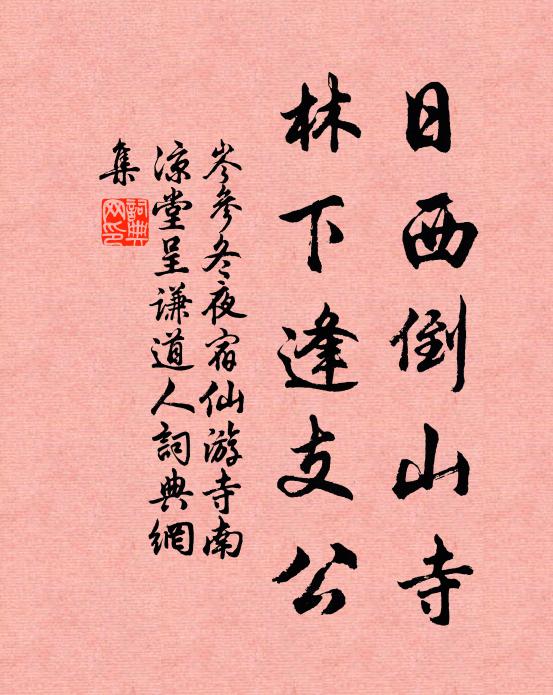 日西倒山寺
林下逢支公
岑參冬夜宿仙游寺南
凉堂呈谦道人詞典網
集
詞典網印